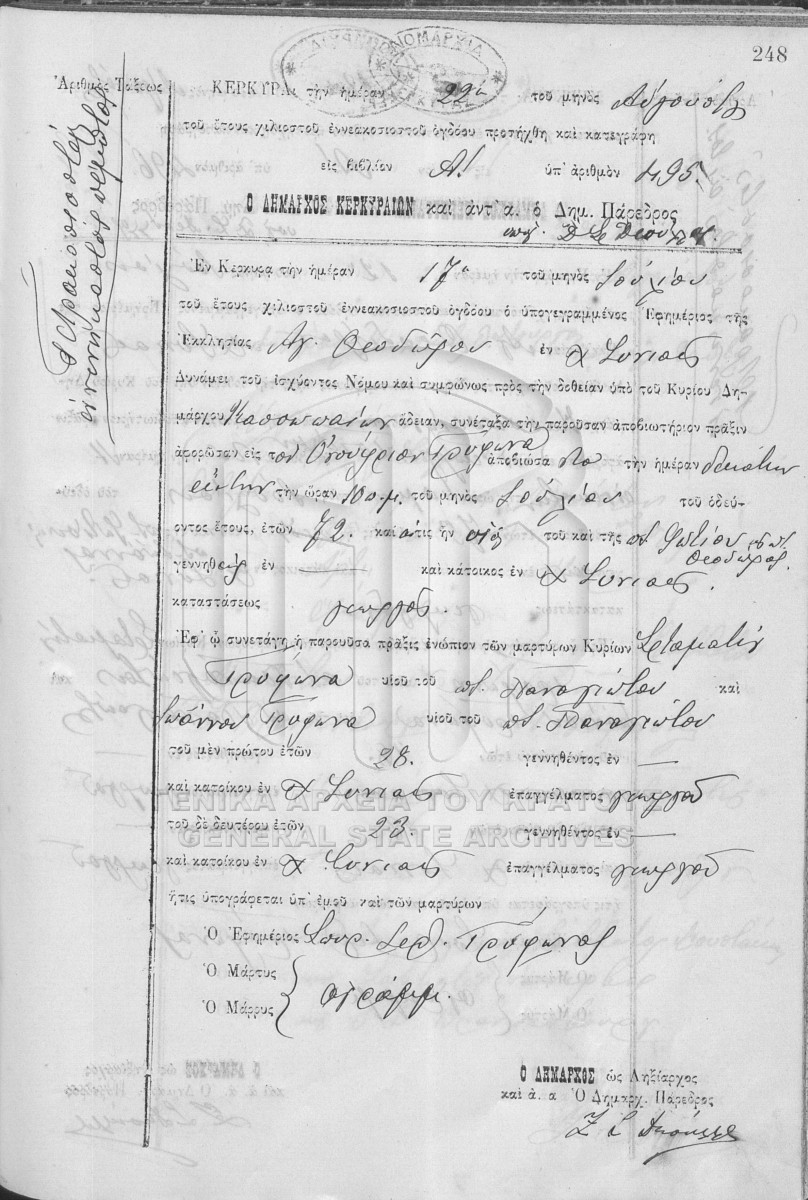 248
ΝΟΜΑΡΧΙΑ
Ἀριθμὸς Τάξεως
ΚΕΡΚΥΡΑι τὴν ἡμέραν 22α τοῦ μηνὸς Αὐγούστου
τοῦ ἔτους χιλιοστοῦ ἐννεακοσιοστοῦ ὀγδόου προσήχθη καὶ κατεγράφη
εἰς βιβλίον Α! ὑπ' ἀριθμὸν 495.
Ο ΔΗΜΑΡΧΟΣ ΚΕΡΚΥΡΑΙΩΝ καὶ ἀντ' α. ὁ Δημ. Πάρεδρος
Ἐν Κερκυρα τὴν ἡμέραν 17η τοῦ μηνὸς Ἰουλίου
τοῦ ἔτους χιλιοστοῦ ἐννεακοσιοστοῦ ὀγδόου ὁ ὑπογεγραμμένος Ἐφημέριος τῆς
Ἐκκλησίας Ἁγ. Θεοδώρου ἐν χ Συνιαῖς
Δυνάμει τοῦ ἰσχύοντος Νόμου καὶ συμφώνως πρὸς τὴν δοθεῖαν ὑπὸ τοῦ Κυρίου Δη-
μάρχου Κασσωπαίων ἄδειαν, συνέταξα τὴν παροῦσαν ἀποβιωτήριον πρᾶξιν
ἀφορῶσαν εἰς τὸν Ὀνούφριον Τρύφωνα ἀποβιώσα τὴν ἡμέραν δεκάτην
ἕκτην τὴν ὥραν 10 π.μ. τοῦ μηνὸς Ἰουλίου τοῦ ὁδεύ-
οντος ἔτους, ἐτῶν 72. καὶ ὅτις ἦν υἱὸς τοῦ καὶ τῆς ποτ Φωτίου
Θεοδώρας.
γεννηθεὶς ἐν — καὶ κάτοικος ἐν χ Συνιαῖς.
καταστάσεως γεωργός.
Ἐφ' ᾧ συνετάγη ἡ παροῦσα πρᾶξις ἐνώπιον τῶν μαρτύρων Κυρίων Σταματίου
Τρύφωνα υἱοῦ τοῦ ποτ. Παναγιώτου καὶ
Ἰωάννου Τρύφωνα υἱοῦ τοῦ ποτ. Παναγιώτου
τοῦ μὲν πρώτου ἐτῶν 28. γεννηθέντος ἐν —
καὶ κατοίκου ἐν χ Συνιαῖς ἐπαγγέλματος γεωργοῦ
ΓΕΝΙΚΑ ΑΡΧΕΙΑ ΤΟΥ ΚΡΑΤΟΥΣ
τοῦ δὲ δευτέρου ἐτῶν 23. γεννηθέντος ἐν —
GENERAL STATE ARCHIVES
καὶ κατοίκου ἐν χ Συνιαῖς ἐπαγγέλματος γεωργοῦ
ἥτις ὑπογράφεται ὑπ' ἐμοῦ καὶ τῶν μαρτύρων
Ὁ Ἐφημέριος Σπυρ. Τρύφωνας
Ὁ Μάρτυς
ἀγράμμ.
Ὁ Μάρρυς
Ο ΔΗΜΑΡΧΟΣ ὡς Ληξίαρχος
καὶ ἀ. α Ὁ Δημαρχ. Πάρεδρος